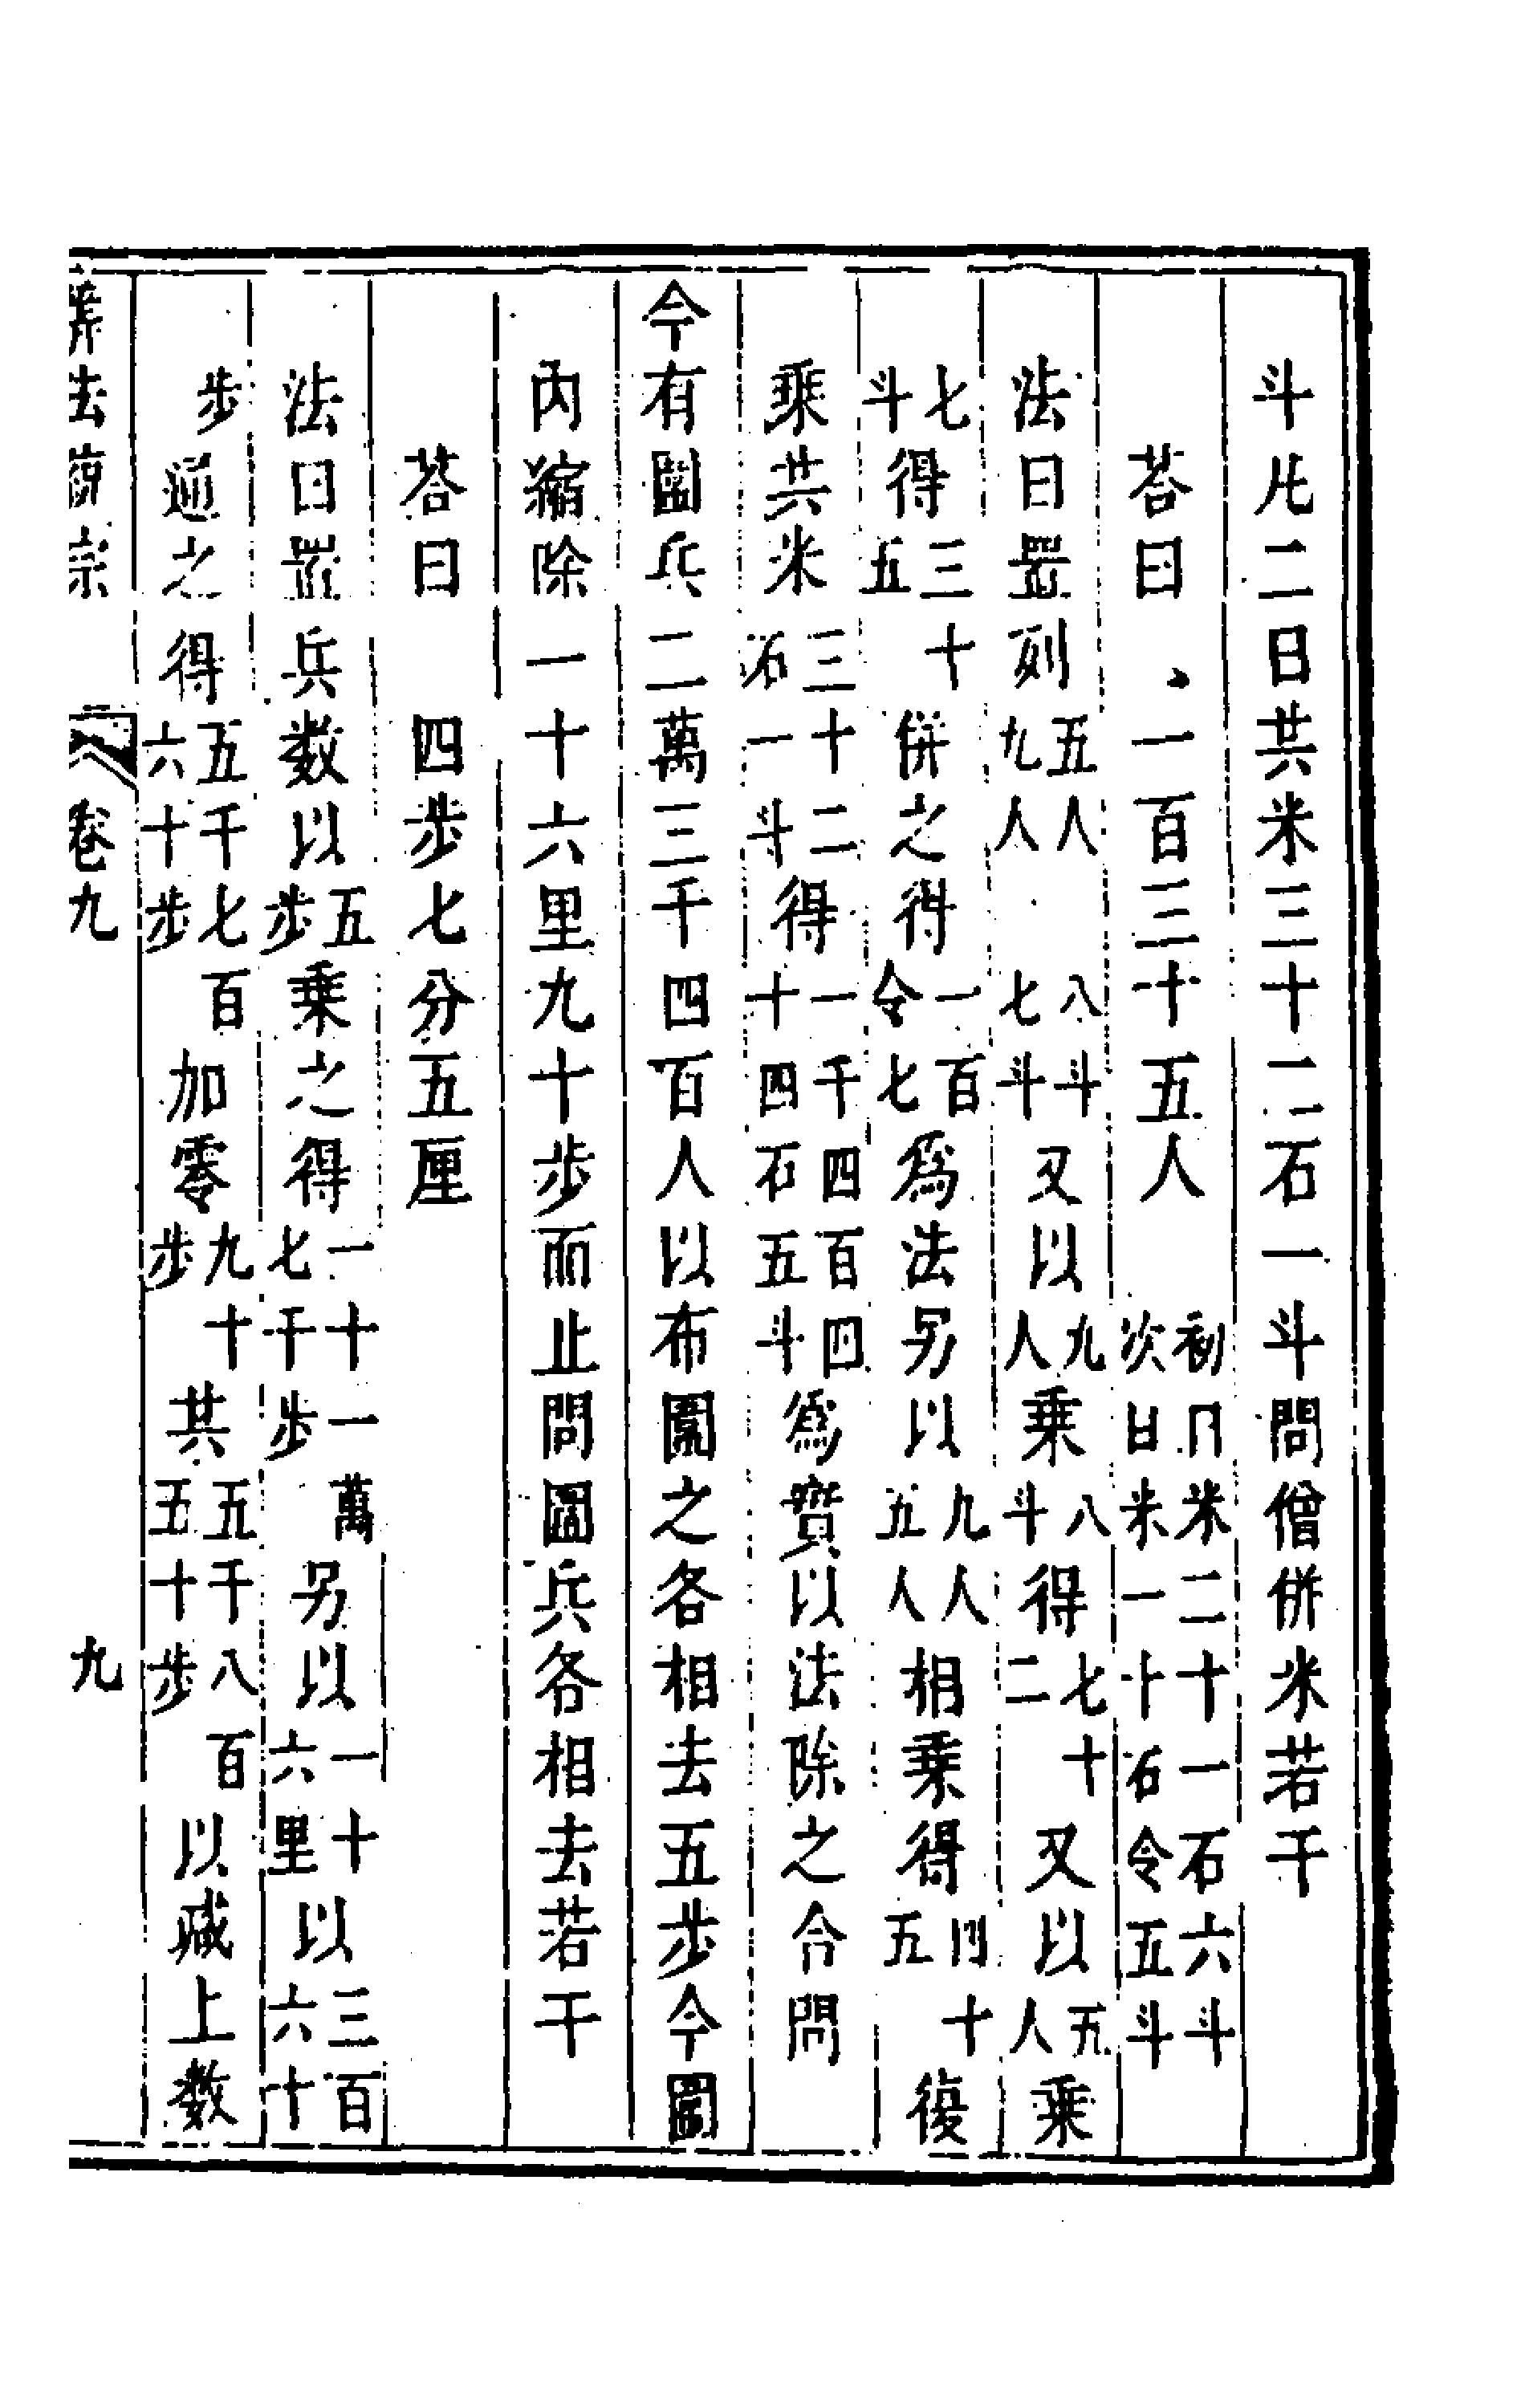 斗凡二日共米三十二石一斗問僧併米若干
荅曰、一百三十五人 初日米二十一石六斗 次日米一十石令五斗
法曰置列五人九人 八斗七斗又以九人乘八斗得七十二又以五人乘
七斗得三十五併之得一百令七爲法另以九人五人相乘得四十五復
乘共米三十二石一斗得一千四百四十四石五斗爲實以法除之合問
今有圍兵二萬三千四百人以布圍之各相去五步今圍
內縮除一十六里九十步而止問圍兵各相去若干
荅曰 四步七分五厘
法曰置兵数以五步乘之得一十一萬七千步另以一十六里以三百六十
步通之得五千七百六十步加零九十步共五千八百五十步以减上数
算法統宗 卷九 九